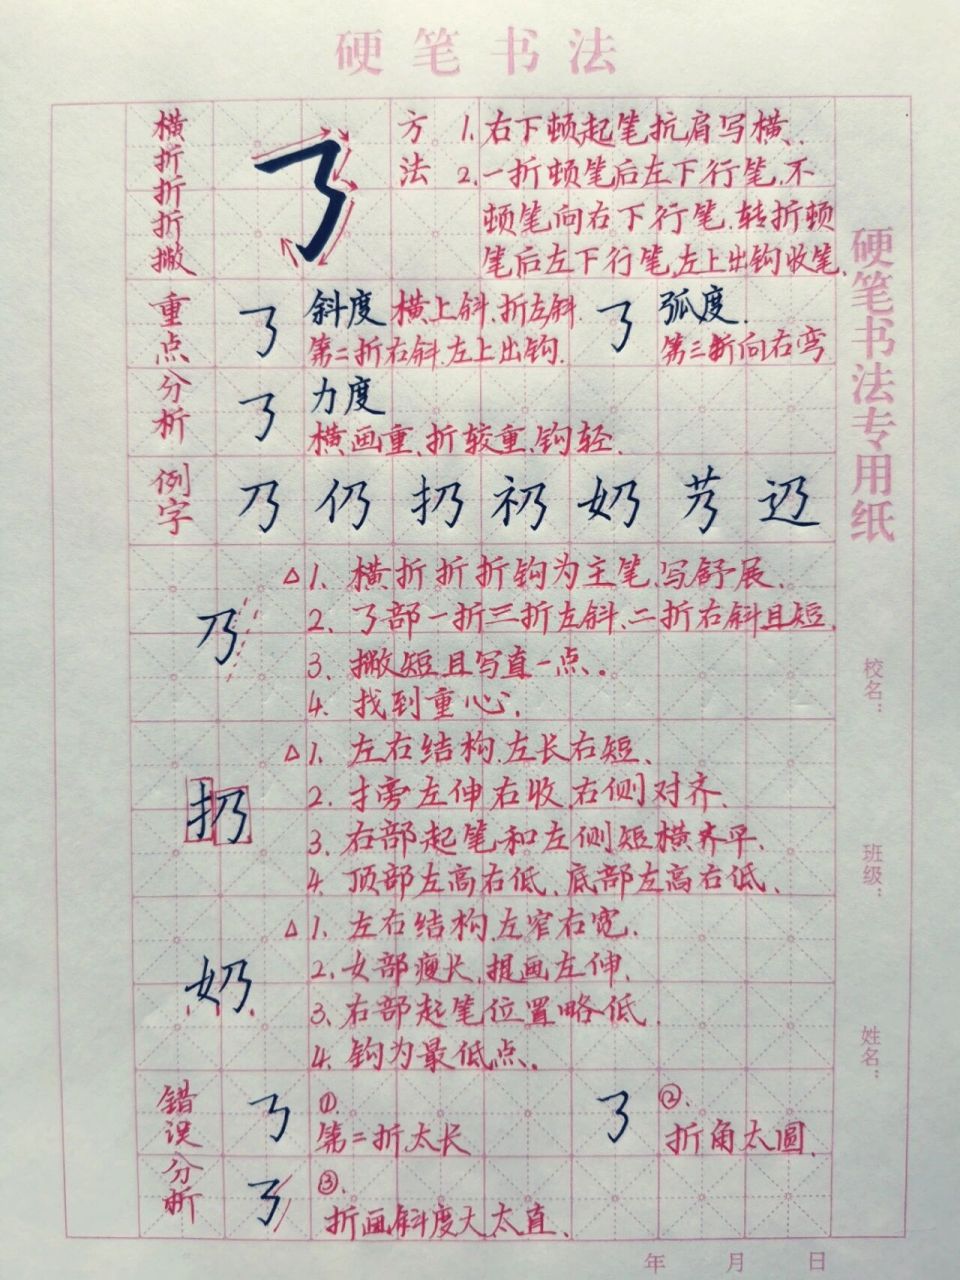 硬笔书法
横折折折撇
方法
1. 右下顿起笔抗肩写横.
2. 一折顿笔后左下行笔,不
顿笔,向右下行笔.转折顿
笔后左下行笔,左上出钩收笔.
重点分析
斜度 横上斜.折左斜.
第二折右斜.左上出钩.
弧度.
第三折向右弯
力度
横画重.折较重.钩轻.
例字
乃 仍 扔 礽 奶 艿 辸
乃
△1. 横折折折钩为主笔.写舒展.
2. 了部一折三折左斜.二折右斜且短.
3. 撇短且写直一点.
4. 找到重心.
扔
△1. 左右结构.左长右短.
2. 扌旁左伸右收.右侧对齐.
3. 右部起笔和左侧短横齐平.
4. 顶部左高右低.底部左高右低.
奶
△1. 左右结构.左窄右宽.
2. 女部瘦长.提画左伸.
3. 右部起笔位置略低.
4. 钩为最低点.
错误分析
①.
第二折太长
②.
折角太圆.
③.
折画斜度大太直.
硬笔书法专用纸
校名：
班级：
姓名：
年 月 日